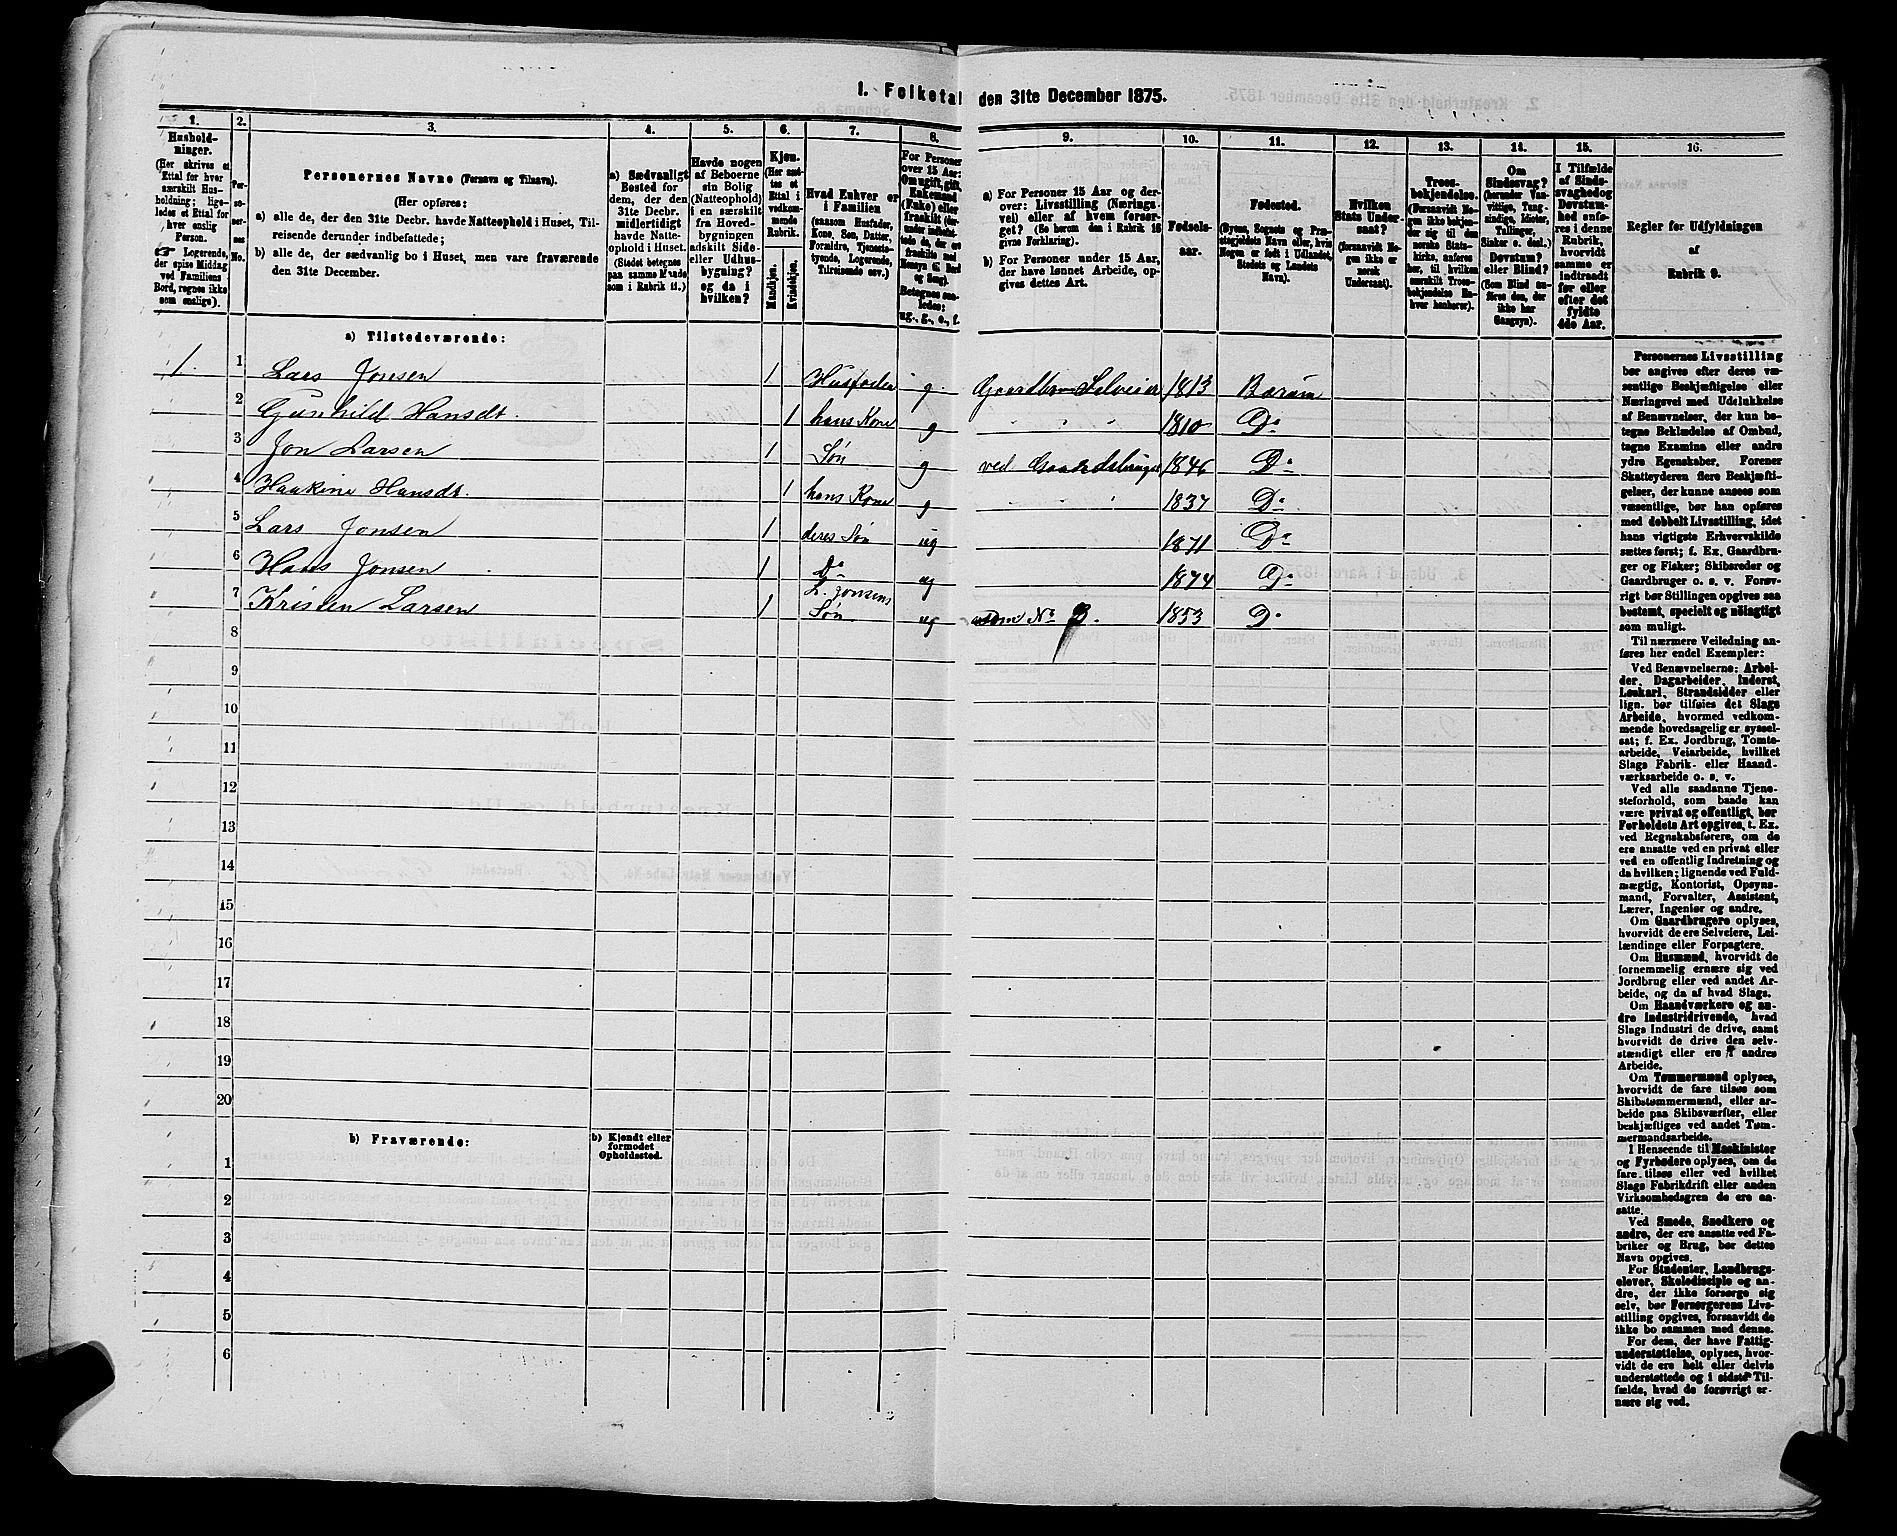 1. Folketal den 31te December 1875.
1. 2. 3. 4. 5. 6. 7. 8. 9. 10. 11. 12. 13. 14. 15. 16.
Hushold-
ninger.
(Her skrives et
Ettal for hver
særskilt Hus-
holdning; lige-
ledes et Ettal for
hver enslig
Person.
☞ Logerende,
der spise Middag
ved Familiens
Bord, regnes ikke
som enslige).
Per-
so-
ner-
nes
No.
Personernes Navne (Fornavn og Tilnavn).
(Her opføres:
a) alle de, der den 31te Decbr. havde Natteophold i Huset, Til-
reisende derunder indbefattede;
b) alle de, der sædvanlig bo i Huset, men vare fraværende
den 31te December.
a) Sædvanligt
Bosted for
dem, der den
31te Decbr.
midlertidigt
havde Natte-
ophold i Huset.
(Stedet betegnes
paa samme Maade
som i Rubrik 11.)
Havde nogen
af Beboerne
sin Bolig
(Natteophold)
i en særskilt
fra Hoved-
bygningen
adskilt Side-
eller Udhus-
bygning?
og da i
hvilken?
Kjøn.
(Her sæt-
tes et
Ettal i
vedkom-
mende
Rubrik.
Mandkjøn.
Kvindekjøn.
Hvad Enhver er
i Familien
(saasom Husfader,
Kone, Søn, Datter,
Forældre, Tjeneste-
tyende, Logerende,
Tilreisende osv.)
For Personer
over 15 Aar:
Om ugift, gift,
Enkemand
(Enke) eller
fraskilt (her-
under indbefat-
tede de, der ere
fraskilte med
Hensyn til Bord
og Seng).
Betegnes saa-
ledes:
ug., g., e., f.
a) For Personer 15 Aar og der-
over: Livsstilling (Nærings-
vei) eller af hvem forsør-
get? (Se herom den i Rubrik 16
givne Forklaring).
b) For Personer under 15 Aar,
der have lønnet Arbeide, op-
gives dettes Art.
Fødsels-
aar.
Fødested.
(Byens, Sognets og Præ-
stegjeldets Navn eller, hvis
Nogen er født i Udlandet,
Stedets og Landets
Navn).
Hvilken
Stats Under-
saat?
(forsaavidt No-
gen ikke er
norsk
Undersaat).
Troes-
bekjendelse.
(Forsaavidt No-
gen ikke bekjen-
der sig til den
norske Stats-
kirke, anføres
her, til hvilken
særskilt Troes-
bekjendelse En-
hver henhører).
Om
Sindssvag?
(herunder Van-
vittige, Tung-
sindige, Idioter,
Sinker o. desl.)
Døvstum?
eller Blind?
(Som Blind an-
føres den, der
ikke har
Gangsyn).
I Tilfælde
af Sinds-
svaghed og
Døvstum-
hed anfø-
res i denne
Rubrik,
hvorvidt
samme er
indtraadt
før eller
efter det
fyldte
4de Aar.
Regler før Udfyldningen
af
Rubrik 9.
a) Tilstedeværende:
1. 1 Lars Jonsen 1 Husfader g Gaardbr. Selveier 1813 Bærum
2 Gunhild Hansdt. 1 hans Kone g " " 1810 Do
3 Jon Larsen 1 Søn g ved Gaardsbruget 1846 Do
4 Haakine Hansdt. 1 hans Kone g " " 1837 Do
5 Lars Jonsen 1 deres Søn ug 1871 Do
6 Hans Jonsen 1 Do ug 1874 Do
7 Kristen Larsen 1 L. Jonsens Søn ug som No 3. 1853 Do
8
9
10
11
12
13
14
15
16
17
18
19
20
b) Fraværende:
b) Kjendt eller
formodet
Opholdssted.
1
2
3
4
5
6
Personernes Livsstilling
bør angives efter deres væ-
sentlige Beskjæftigelse eller
Næringsvei med Udelukkelse
af Benævnelser, der kun be-
tegne Beklædelse af Ombud,
tegne Examina eller andre
ydre Egenskaber. Forener
Skatteyderen flere Beskjæfti-
gelser, der kunne ansees som
væsentlige, bør han opføres
med dobbelt Livsstilling, idet
hans vigtigste Erhvervskilde
sættes først; f. Ex. Gaardbru-
ger og Fisker; Skibsreder og
Gaardbruger o. s. v. Forøv-
rigt bør Stillingen opgives saa
bestemt, specielt og nøiagtigt
som muligt.
Til nærmere Veiledning an-
føres her endel Exempler:
Ved Benævnelserne: Arbei-
der, Dagarbeider, Inderst,
Løskarl, Strandsidder eller
lign. bør tilføies det Slags
Arbeide, hvormed vedkom-
mende hovedsagelig er syssel-
sat; f. Ex. Jordbrug, Tomte-
arbeide, Veiarbeide, hvilket
Slags Fabrik- eller Haand-
værksarbeide o. s. v.
Ved alle saadanne Tjene-
steforhold, som baade kan
være privat og offentligt, bør
Forholdets Art opgives, t. Ex.
ved Regnskabsførere, om de
ere ansatte ved en privat eller
ved en offentlig Indretning og
da hvilken; lignende ved Fuld-
mægtig, Kontorist, Opsyns-
mand, Forvalter, Assistent,
Lærer, Ingeniør og andre.
Om Gaardbrugere oplyses,
hvorvidt de ere Selveiere, Lei-
lændinge eller Forpagtere.
Om Husmænd, hvorvidt de
fornemmelig ernære sig ved
Jordbrug eller ved andet Ar-
beide, og da af hvad Slags.
Om Haandværkere og an-
dre Industridrivende, hvad
Slags Industri de drive, samt
hvorvidt de drive den selv-
stændigt eller ere i andres
Arbeide.
Om Tømmermænd oplyses,
hvorvidt de fare tilsøs som
Skibstømmermænd, eller ar-
beide paa Skibsværfter, eller
beskjæftiges ved andet Tøm-
mermandsarbeide.
I Henseende til Maskinister
og Fyrbødere oplyses, om de
fare tilsøs eller ved hvilket
Slags Fabrikdrift eller anden
Virksomhedsgren de ere an-
satte.
Ved Smede, Snedkere og
andre, der ere ansatte ved Fa-
briker og Brug, bør dettes
Navn opgives.
For Studenter, Landbrugs-
elever, Skoledisciple og an-
dre, der ikke forsørge sig
selv, bør Forsørgerens Livs-
stilling opgives, forsaavidt de
ikke bo sammen med denne.
For dem, der have Fattig-
understøttelse, oplyses, hvor-
vidt de ere helt eller delvis
understøttede og i sidste Til-
fælde, hvad de forøvrigt er-
nære sig ved.